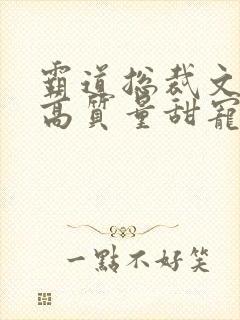 霸道总裁文
高质量甜宠
一點不好笑